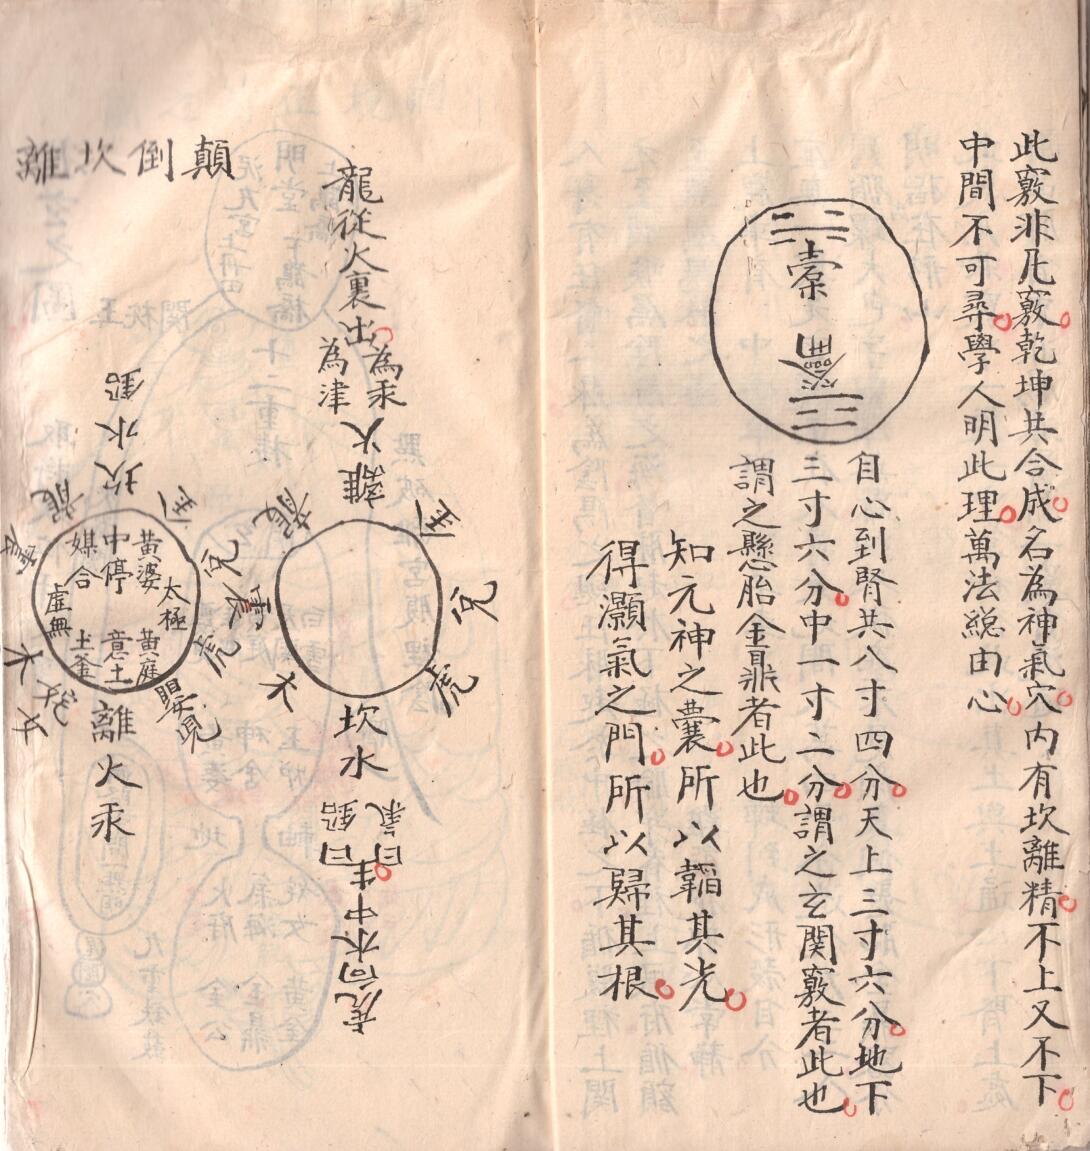 此竅非凡竅乾坤共合成名為神氣穴内有坎離精不上又不下
中間不可尋學人明此理萬法総由心
橐
籥
自心到腎共八寸四分天上三寸六分地下
三寸六分中一寸二分謂之玄関竅者此也
謂之懸胎金鼎者此也
知元神之囊所以韜其光
得灝氣之門所以歸其根
顛倒坎離
龍從火裏出
為汞
為津
離火
龍
木
兎
虎
坎水
為鉛
為氣
虎向水中生
鉛
水
坎
龍
兎
虎
黃婆
中停
媒合
太極
虛無
黃庭
意土
土釜
木
姹女
嬰児
離火汞